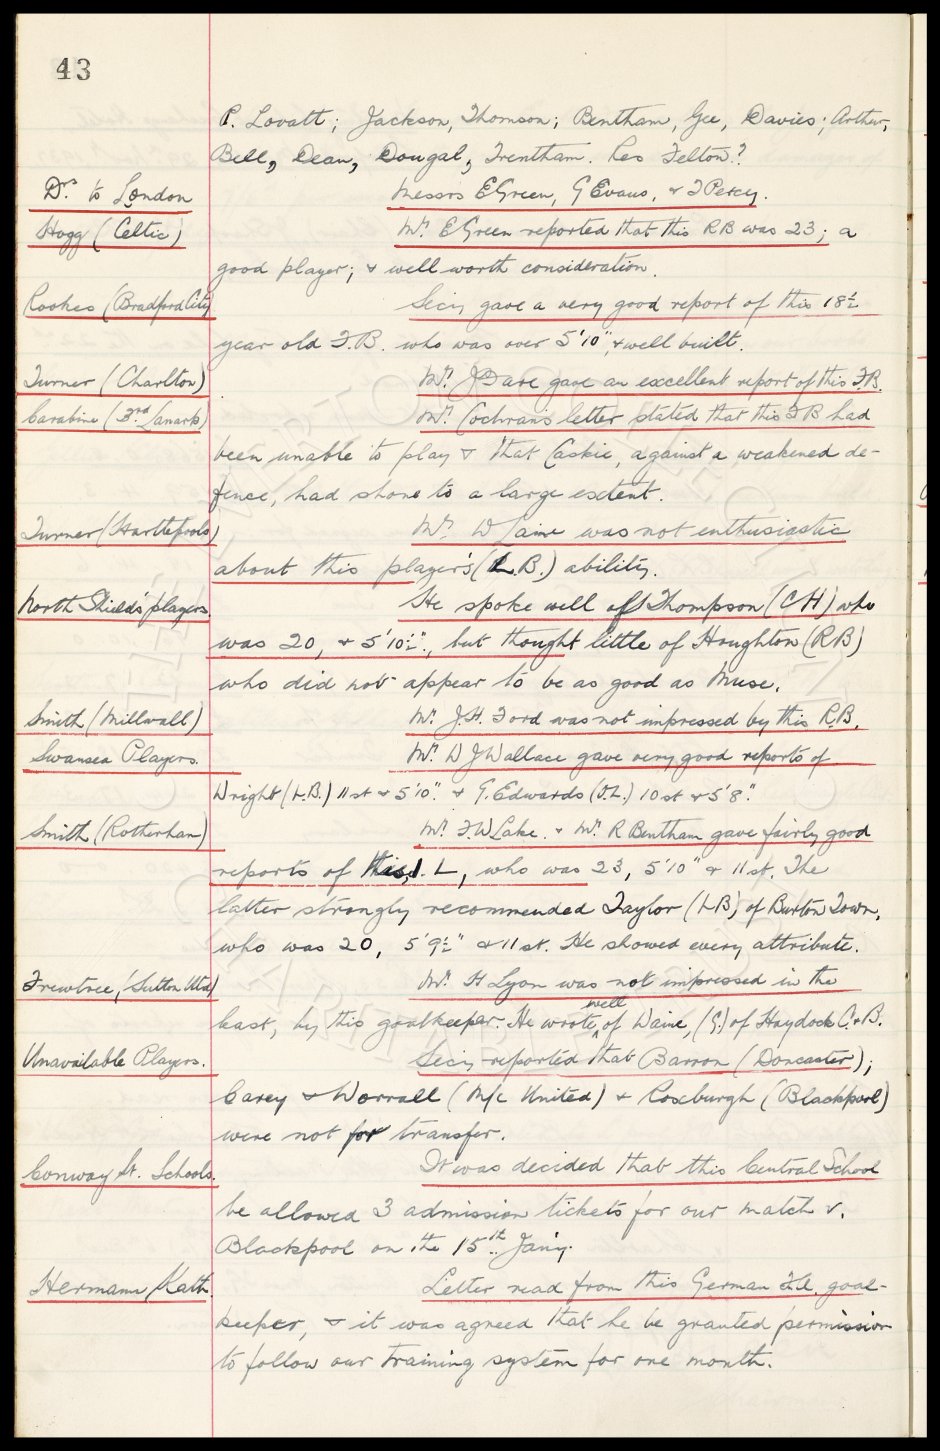 43
P. Lovatt; Jackson, Thomson; Bentham, Gee, Davies; Arthur,
Bell, Dean, Dougal, Trentham. Res Felton?
Drs to London Messrs E Green, G Evans, & F Percy.
Hogg (Celtic) Mr. E Green reported that this RB was 23; a
good player; & well worth consideration.
Rookes (Bradford City) Secy gave a very good report of this 18½
year old F.B. who was over 5'10", & well built.
Turner (Charlton) Mr. J Dave gave an excellent report of this FB.
Carabine (3rd Lanark) Mr. Cochrans letter stated that this FB had
been unable to play & that Caskie, against a weakened de-
fence, had shone to a large extent.
Turner (Hartlepools) Mr. W Laine was not enthusiastic
about this player's (L.B.) ability.
North Shields' players. He spoke well of Thompson (CH) who
was 20, & 5'10½", but thought little of Houghton (RB)
who did not appear to be as good as Muse.
Smith (Millwall) Mr. J.H. Ford was not impressed by this R.B.
Swansea Players. Mr. W J Wallace gave very good reports of
Wright (L.B.) 11 st & 5'10". & G. Edwards (I.L.) 10 st & 5'8".
Smith (Rotherham) Mr. F.W Lake. & Mr. R Bentham gave fairly good
reports of this I. L, who was 23, 5'10" & 11 st. The
latter strongly recommended Taylor (LB) of Burton Town,
who was 20, 5'9½" & 11 st. He showed every attribute.
Trewtree, (Sutton Utd) Mr. H Lyon was not impressed in the
least, by this goalkeeper. He wrote well of Waine, (G.) of Haydock C. & B.
Unavailable Players. Secy reported that Barron (Doncaster);
Carey & Worrall (M/c United) & Roxburgh (Blackpool)
were not for transfer.
Conway St. Schools. It was decided that this Central School
be allowed 3 admission tickets for our match v.
Blackpool on the 15th Jany.
Hermann Kath. Letter read from this German goal-
keeper, & it was agreed that he be granted permission
to follow our training system for one month.